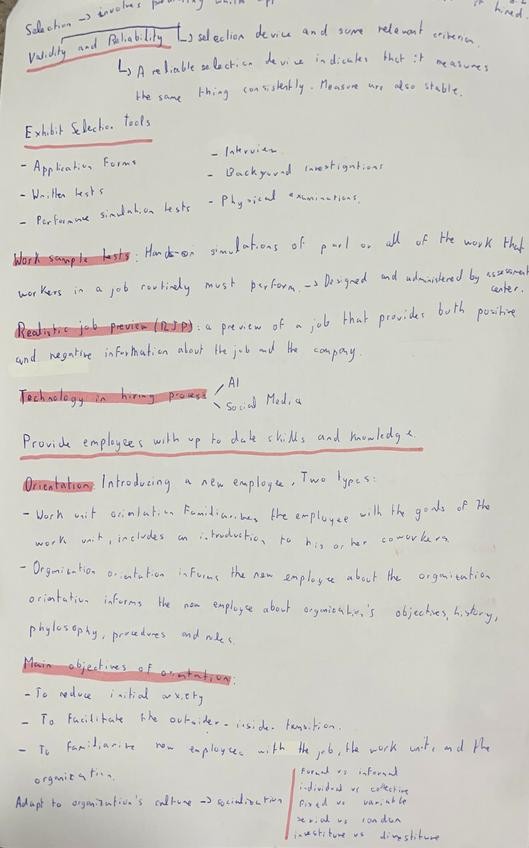 hired.
Selection → involves
Validity and Reliability ↳ selection device and some relevant criterion.
↳ A reliable selection device indicates that it measures
the same thing consistently. Measure are also stable.
Exhibit Selection tools
- Application Forms
- Written tests
- Performance simulation tests
- Interview
- Background investigations
- Physical examinations.
Work sample tests: Hands-on simulations of part or all of the work that
workers in a job routinely must perform. → Designed and administered by assessment
center.
Realistic job preview (RJP): a preview of a job that provides both positive
and negative information about the job and the company.
Technology in hiring process
AI
Social Media
Provide employees with up to date skills and knowledge.
Orientation: Introducing a new employee. Two types:
- Work unit orientation familiarizes the employee with the goals of the
work unit, includes an introduction to his or her coworkers
- Organization orientation informs the new employee about the organization
orientation informs the new employee about organization's objectives, history,
phylosophy, procedures and rules.
Main objectives of orientation:
- To reduce initial anxiety
- To facilitate the outsider-insider transition.
- To familiarize new employees with the job, the work unit, and the
organization.
Adapt to organization's culture → socialization
formal vs informal
individual vs collective
fixed vs variable
serial vs random
investiture vs divestiture